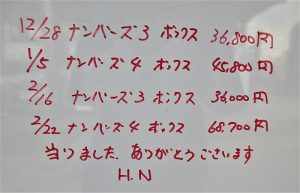 12/28 ナンバーズ3 ボックス 36,800円
1/5 ナンバーズ4 ボックス 45,800円
2/16 ナンバーズ3 ボックス 36,000円
2/22 ナンバーズ4 ボックス 68,700円
当りました。ありがとうございます
H.N